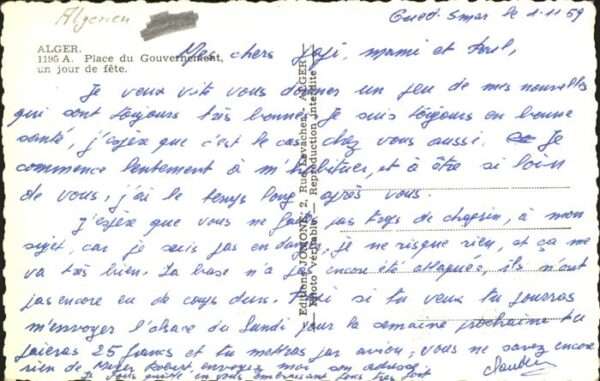 Algerien
Oued-Smar le 1.11.59
ALGER.
1195 A. Place du Gouvernement,
un jour de fête.
Mes chers papi, mami et tous,
Je veux vite vous donner un peu de mes nouvelles
qui sont toujours très bonnes. Je suis toujours en bonne
santé, j'espère que c'est le cas chez vous aussi. Je
commence lentement à m'habituer, et à être si loin
de vous, j'ai le temps long après vous.
J'espère que vous ne faites pas trop de chagrin, à mon
sujet, car je suis pas en danger, je ne risque rien, et ça me
va très bien. La base n'a pas encore été attaquée, ils n'ont
pas encore eu de coups durs. si tu veux tu pourras
m'envoyer l'alsace du Lundi pour la semaine prochaine tu
paieras 25 francs et tu mettras par avion, vous ne savez encore
rien de Robert, envoyez moi son adresse.
Je vous quitte en vous embrassant tous très fort
Claude
Editions JOMONE, 2, Rue Lavacher - ALGER
Photo véritable - Reproduction interdite